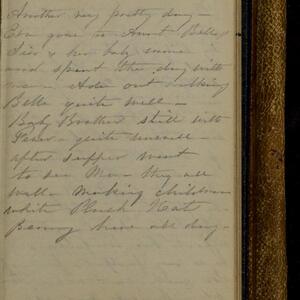 Another very pretty day -
Eva gone to Aunt Bells
her baby came
and spent the day with
me - out walking
Belle quite well -
Baby Brother still with
Fever - quite unwell -
after supper went
to see Mrs they all
well - making children
white Plush Hat -
Benny here all day -